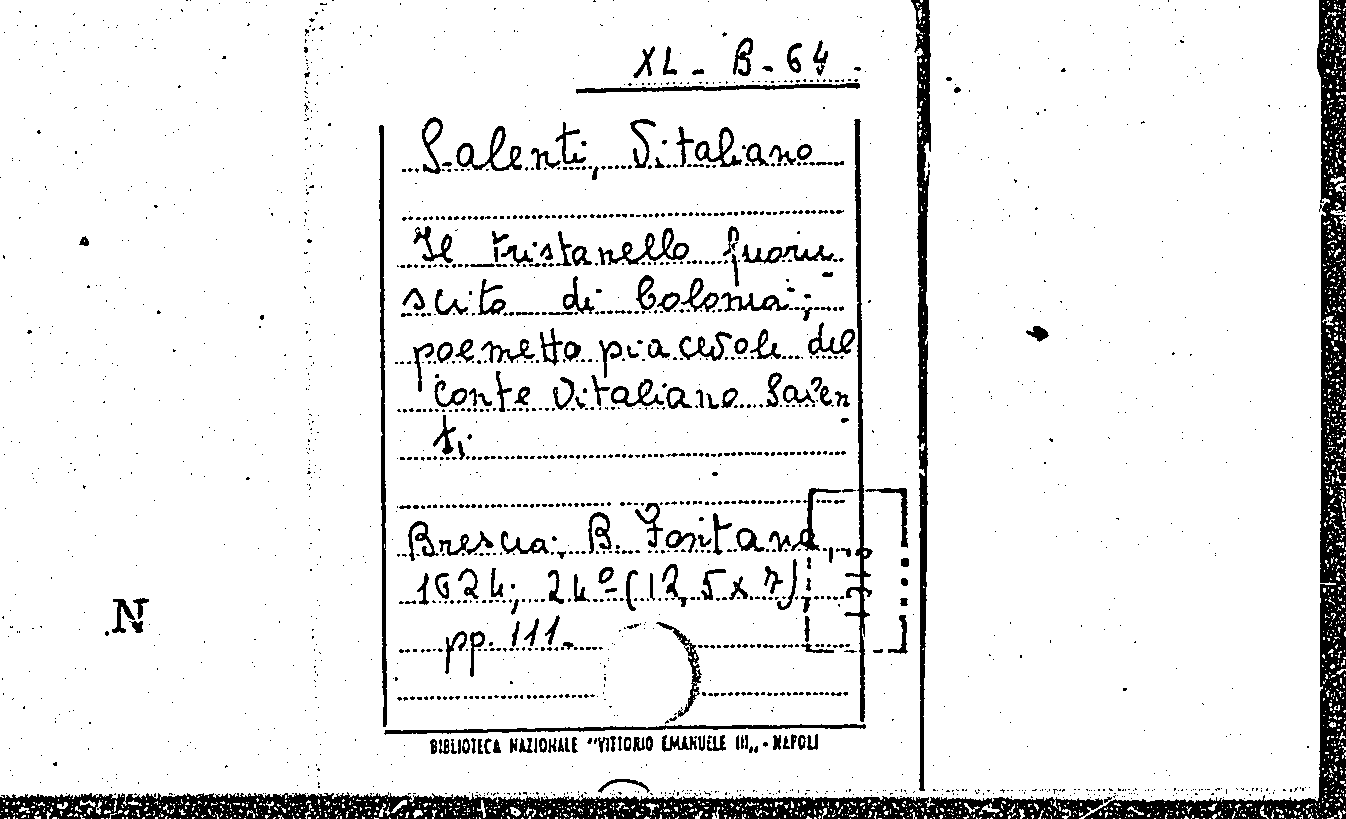 XL - B - 64 -
Salenti, Vitaliano
Il tristanello fuoriu-
scito di Colonia;
poemetto piacevole del
conte Vitaliano Salen-
ti.
Brescia, B. Fontana,
1624; 24º (12,5 x 7),
pp. 111.
BIBLIOTECA NAZIONALE "VITTORIO EMANUELE III„ - NAPOLI
N